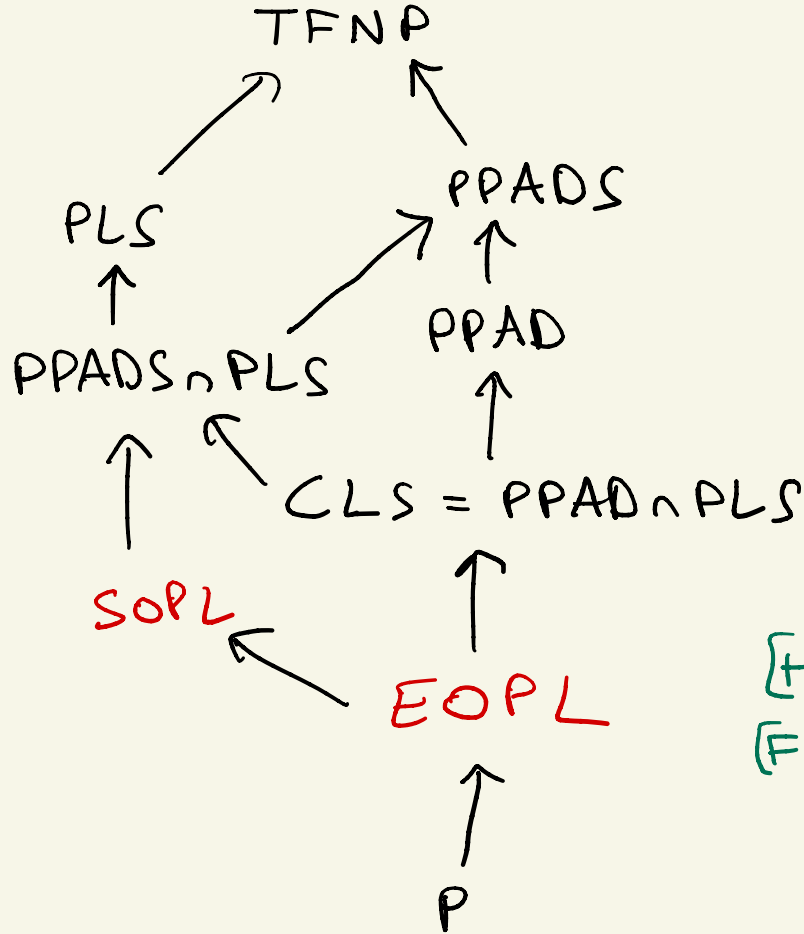 TFNP
PPADS
PLS
PPAD
PPADS ∩ PLS
CLS = PPAD ∩ PLS
SOPL
EOPL
P